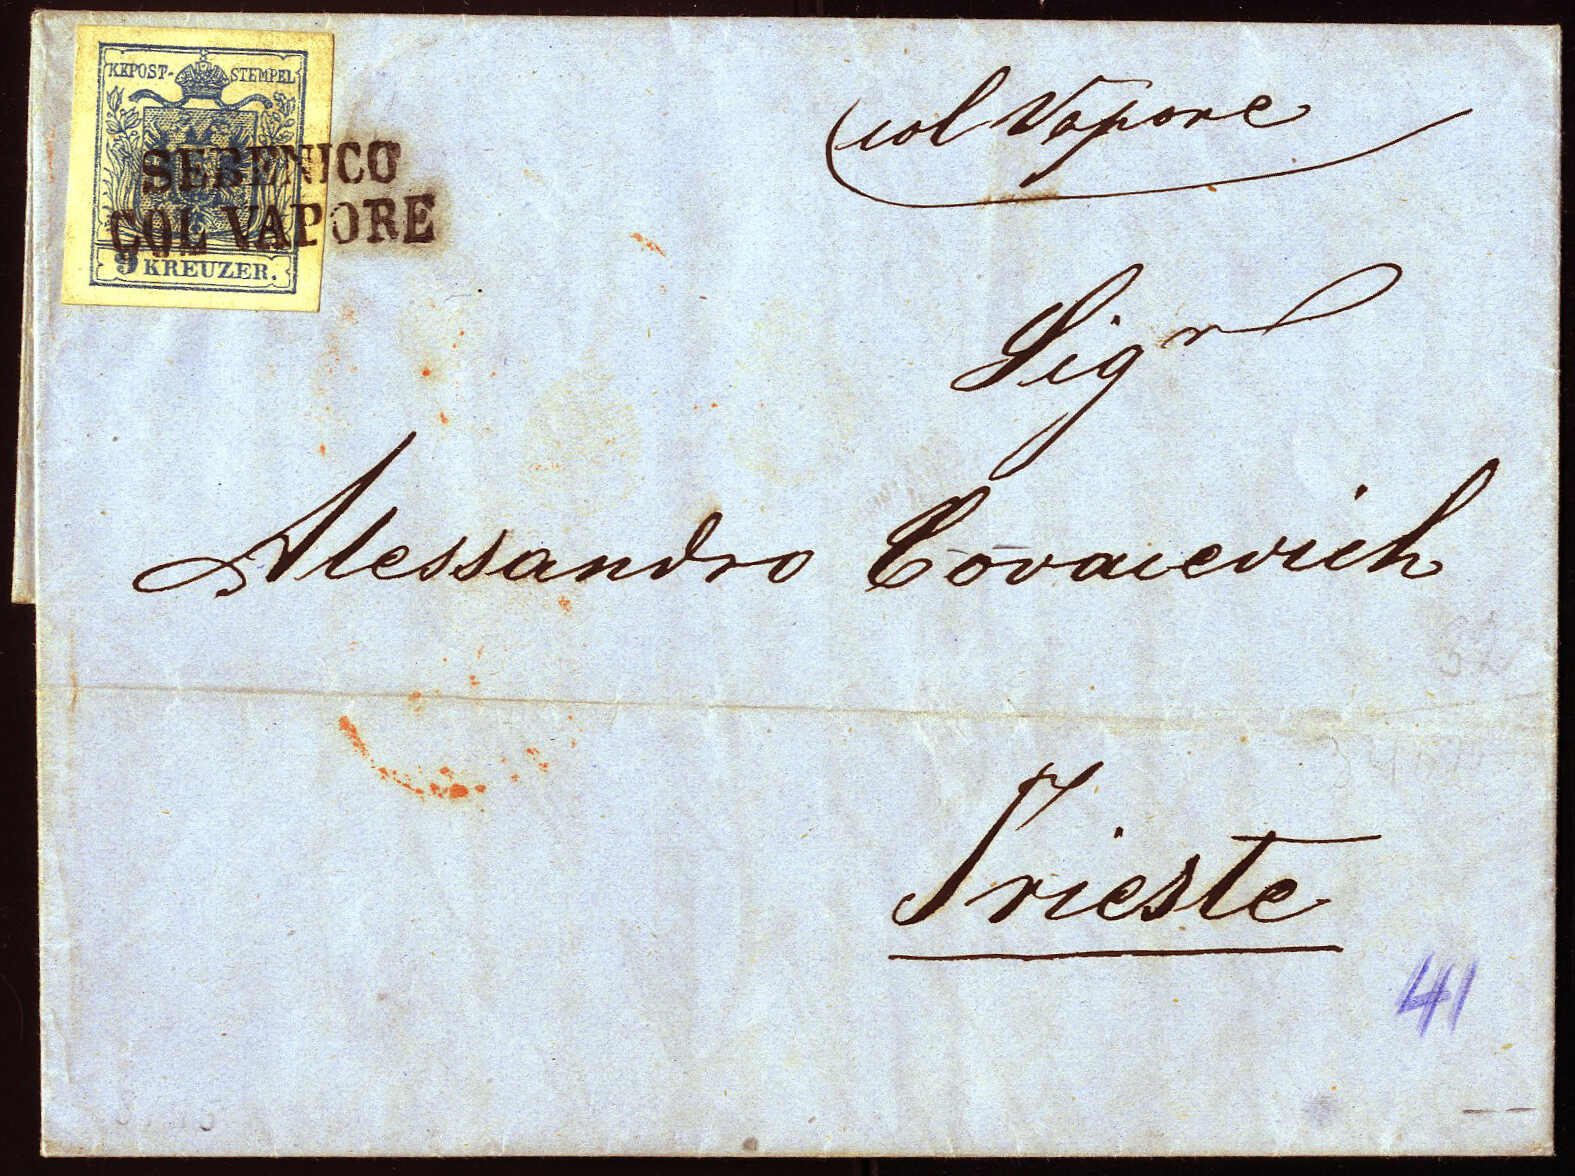 KKPOST-STEMPEL
SEBENICO
COL VAPORE
9 KREUZER.
col Vapore
Sigr
Alessandro Covaievich
Trieste
41